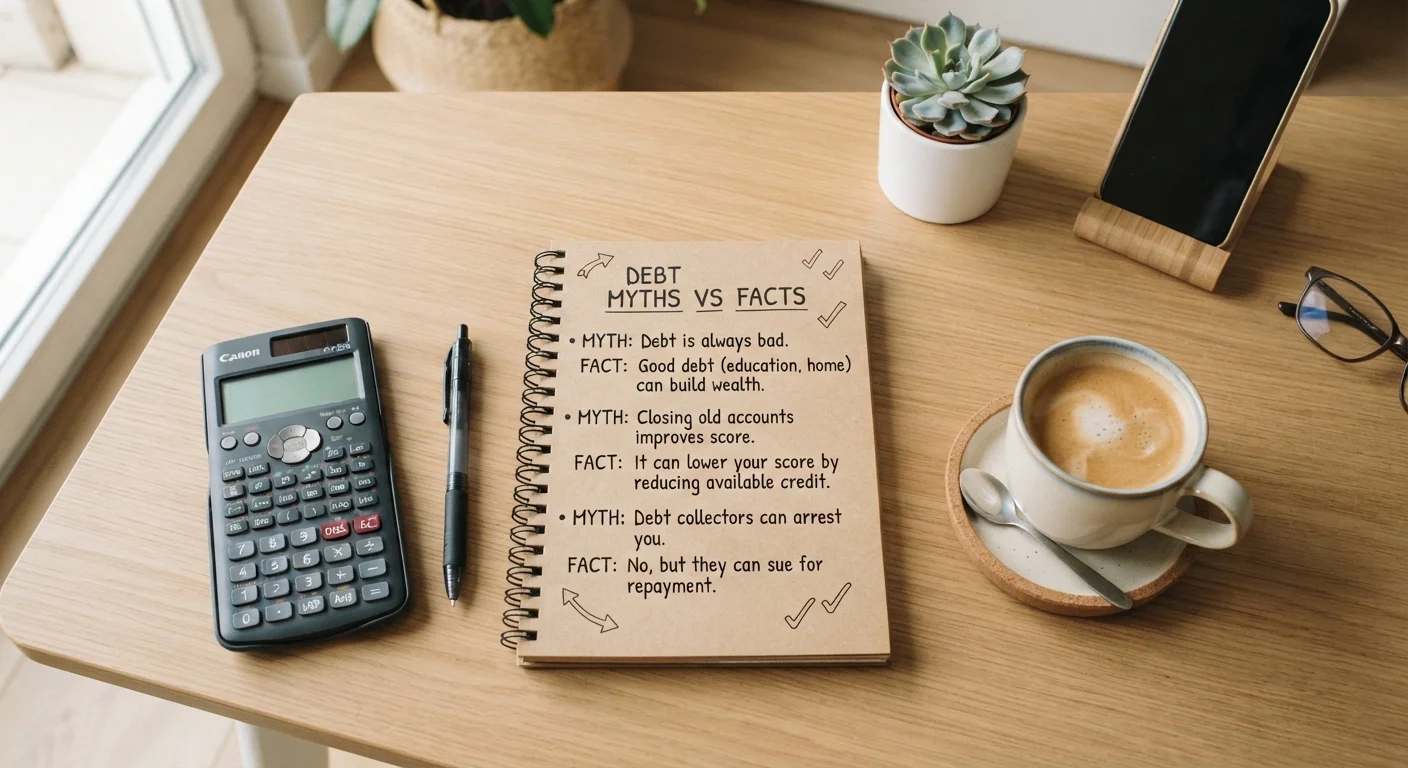 DEBT
MYTHS VS FACTS
• MYTH: Debt is always bad.
FACT: Good debt (education, home)
can build wealth.
• MYTH: Closing old accounts
improves score.
FACT: It can lower your score by
reducing available credit.
• MYTH: Debt collectors can arrest
you.
FACT: No, but they can sue for
repayment.
Canon
7 8 9
4
1 2 3
0